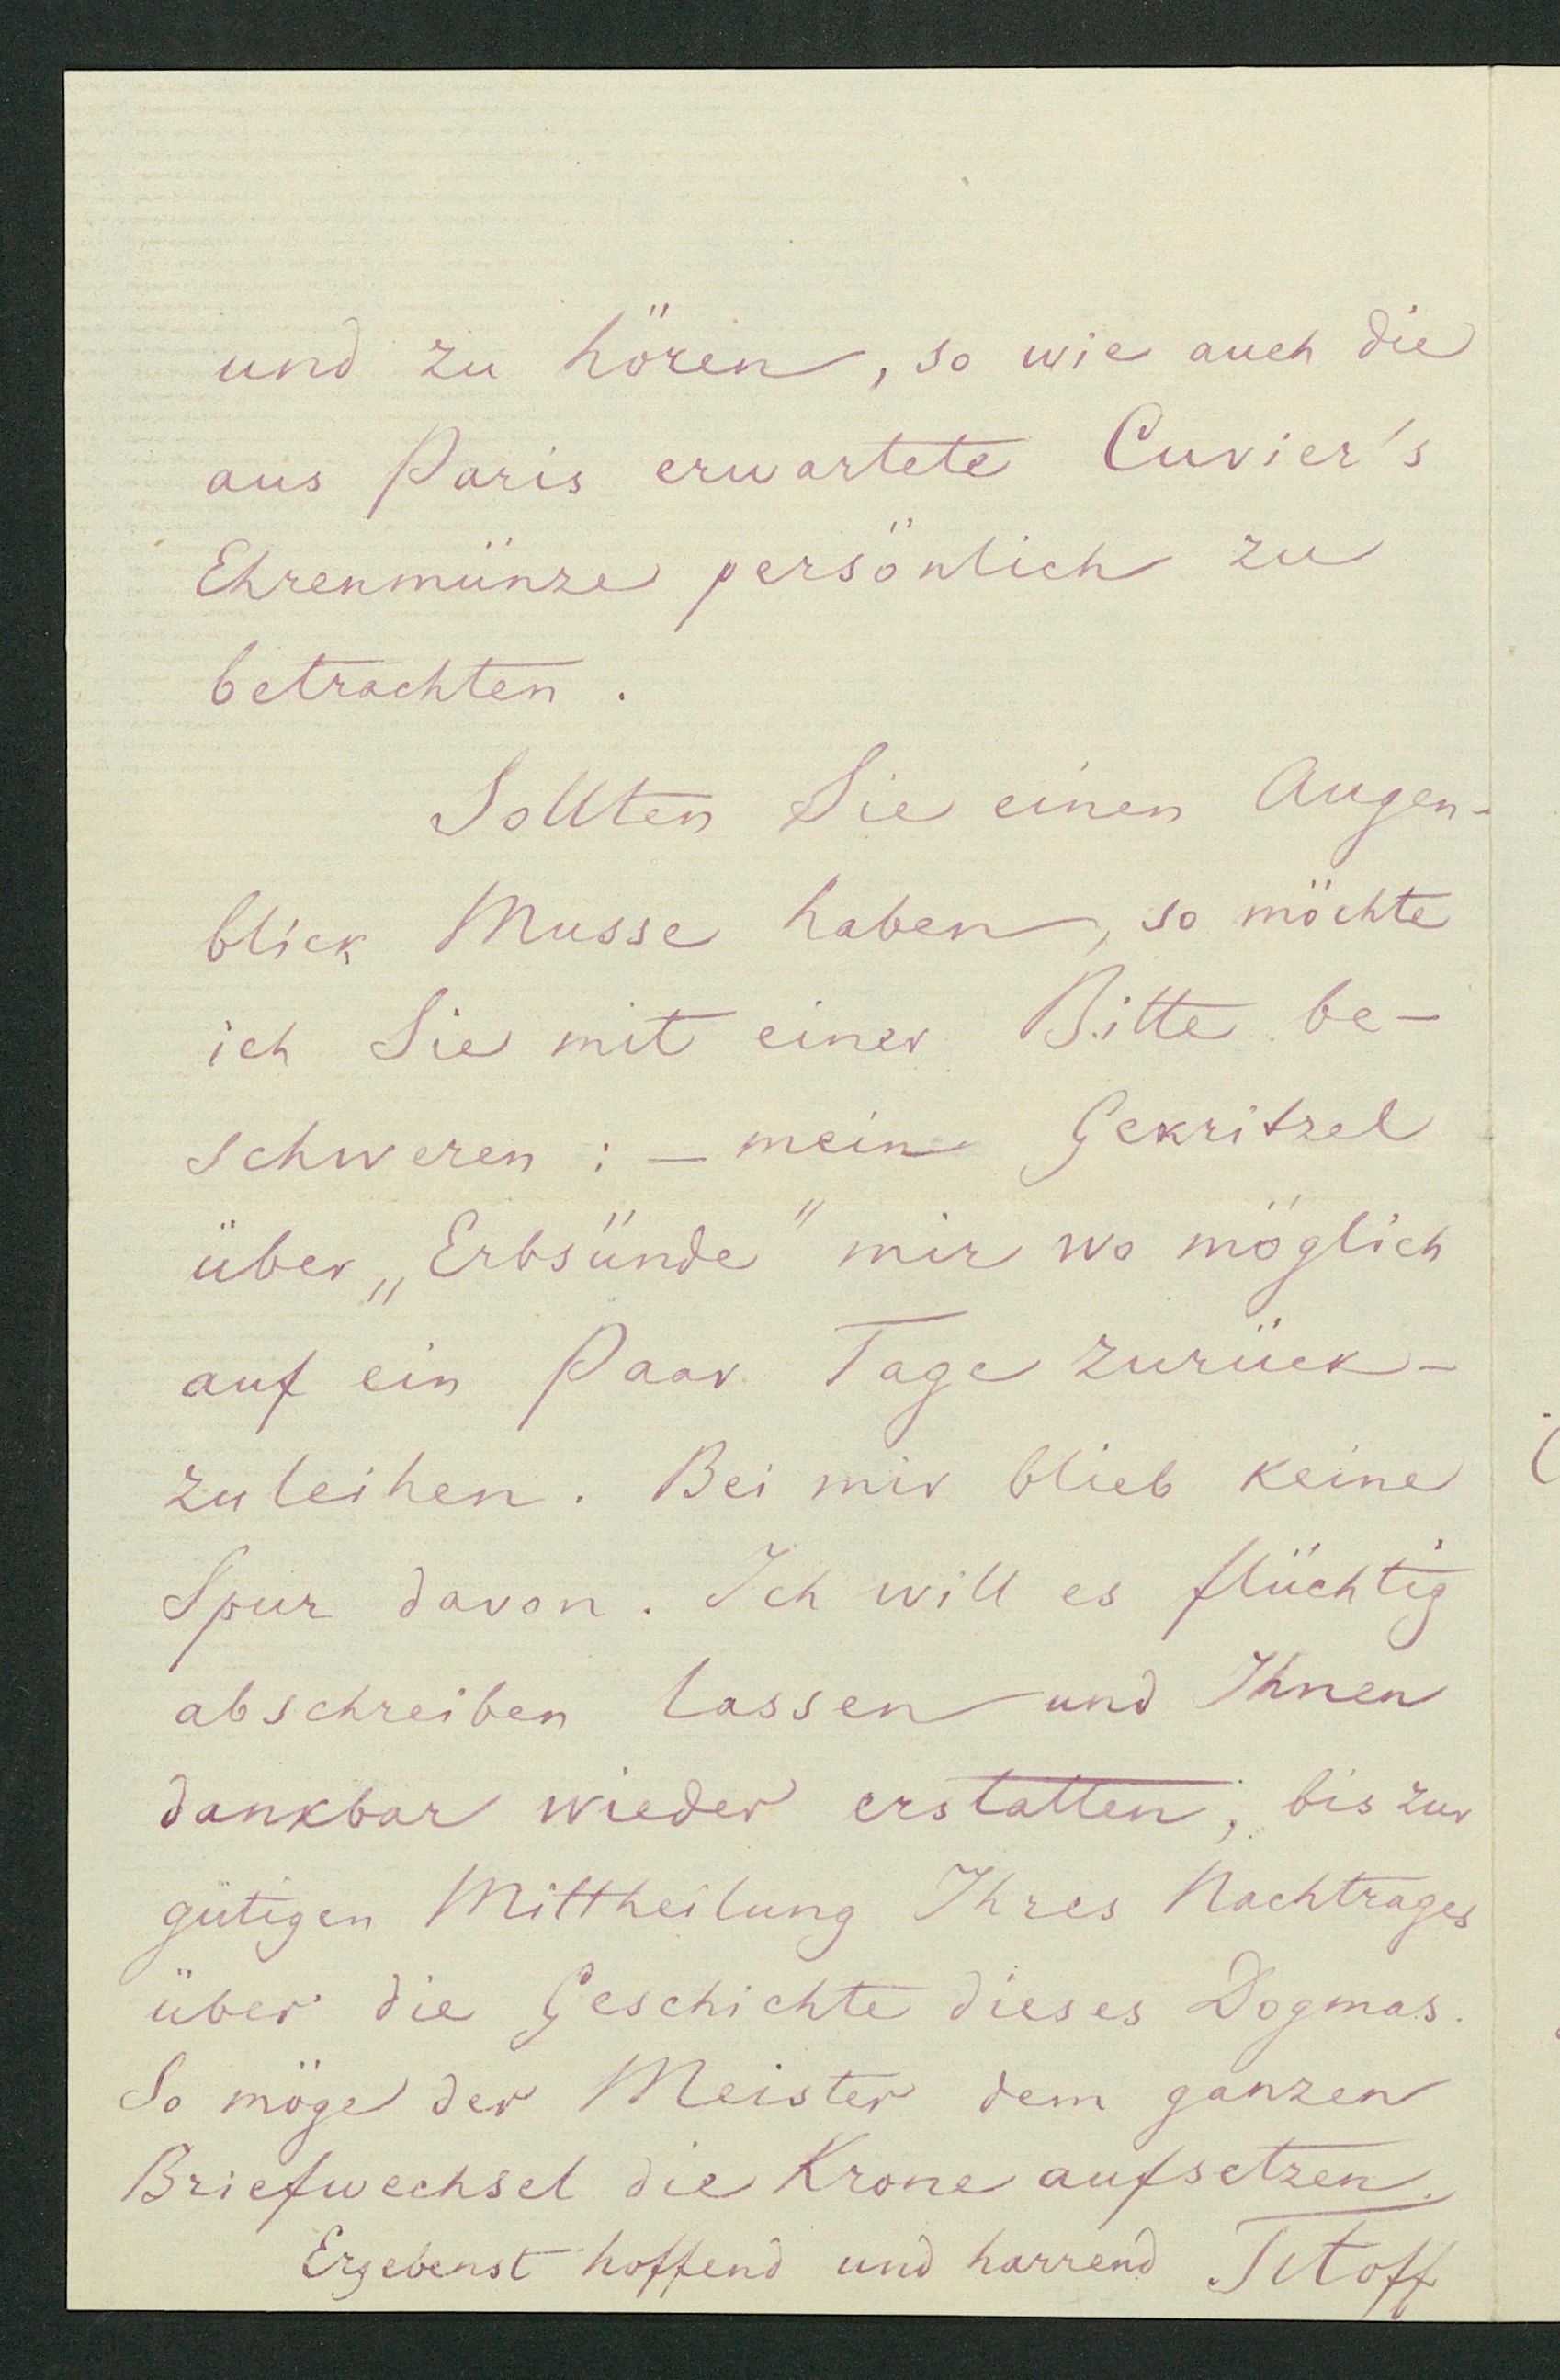 und zu hören, so wie auch die
aus Paris erwartete Cuvier's
Ehrenmünze persönlich zu
betrachten.
Sollten Sie einen Augen-
blick Musse haben, so möchte
ich Sie mit einer Bitte be-
schweren : – mein Gekritzel
über „Erbsünde" mir wo möglich
auf ein Paar Tage zurück-
zuleihen. Bei mir blieb keine
Spur davon. Ich will es flüchtig
abschreiben lassen und Ihnen
dankbar wieder erstatten, bis zur
gütigen Mittheilung Ihres Nachtrages
über die Geschichte dieses Dogmas.
So möge der Meister dem ganzen
Briefwechsel die Krone aufsetzen.
Ergebenst hoffend und harrend Titoff